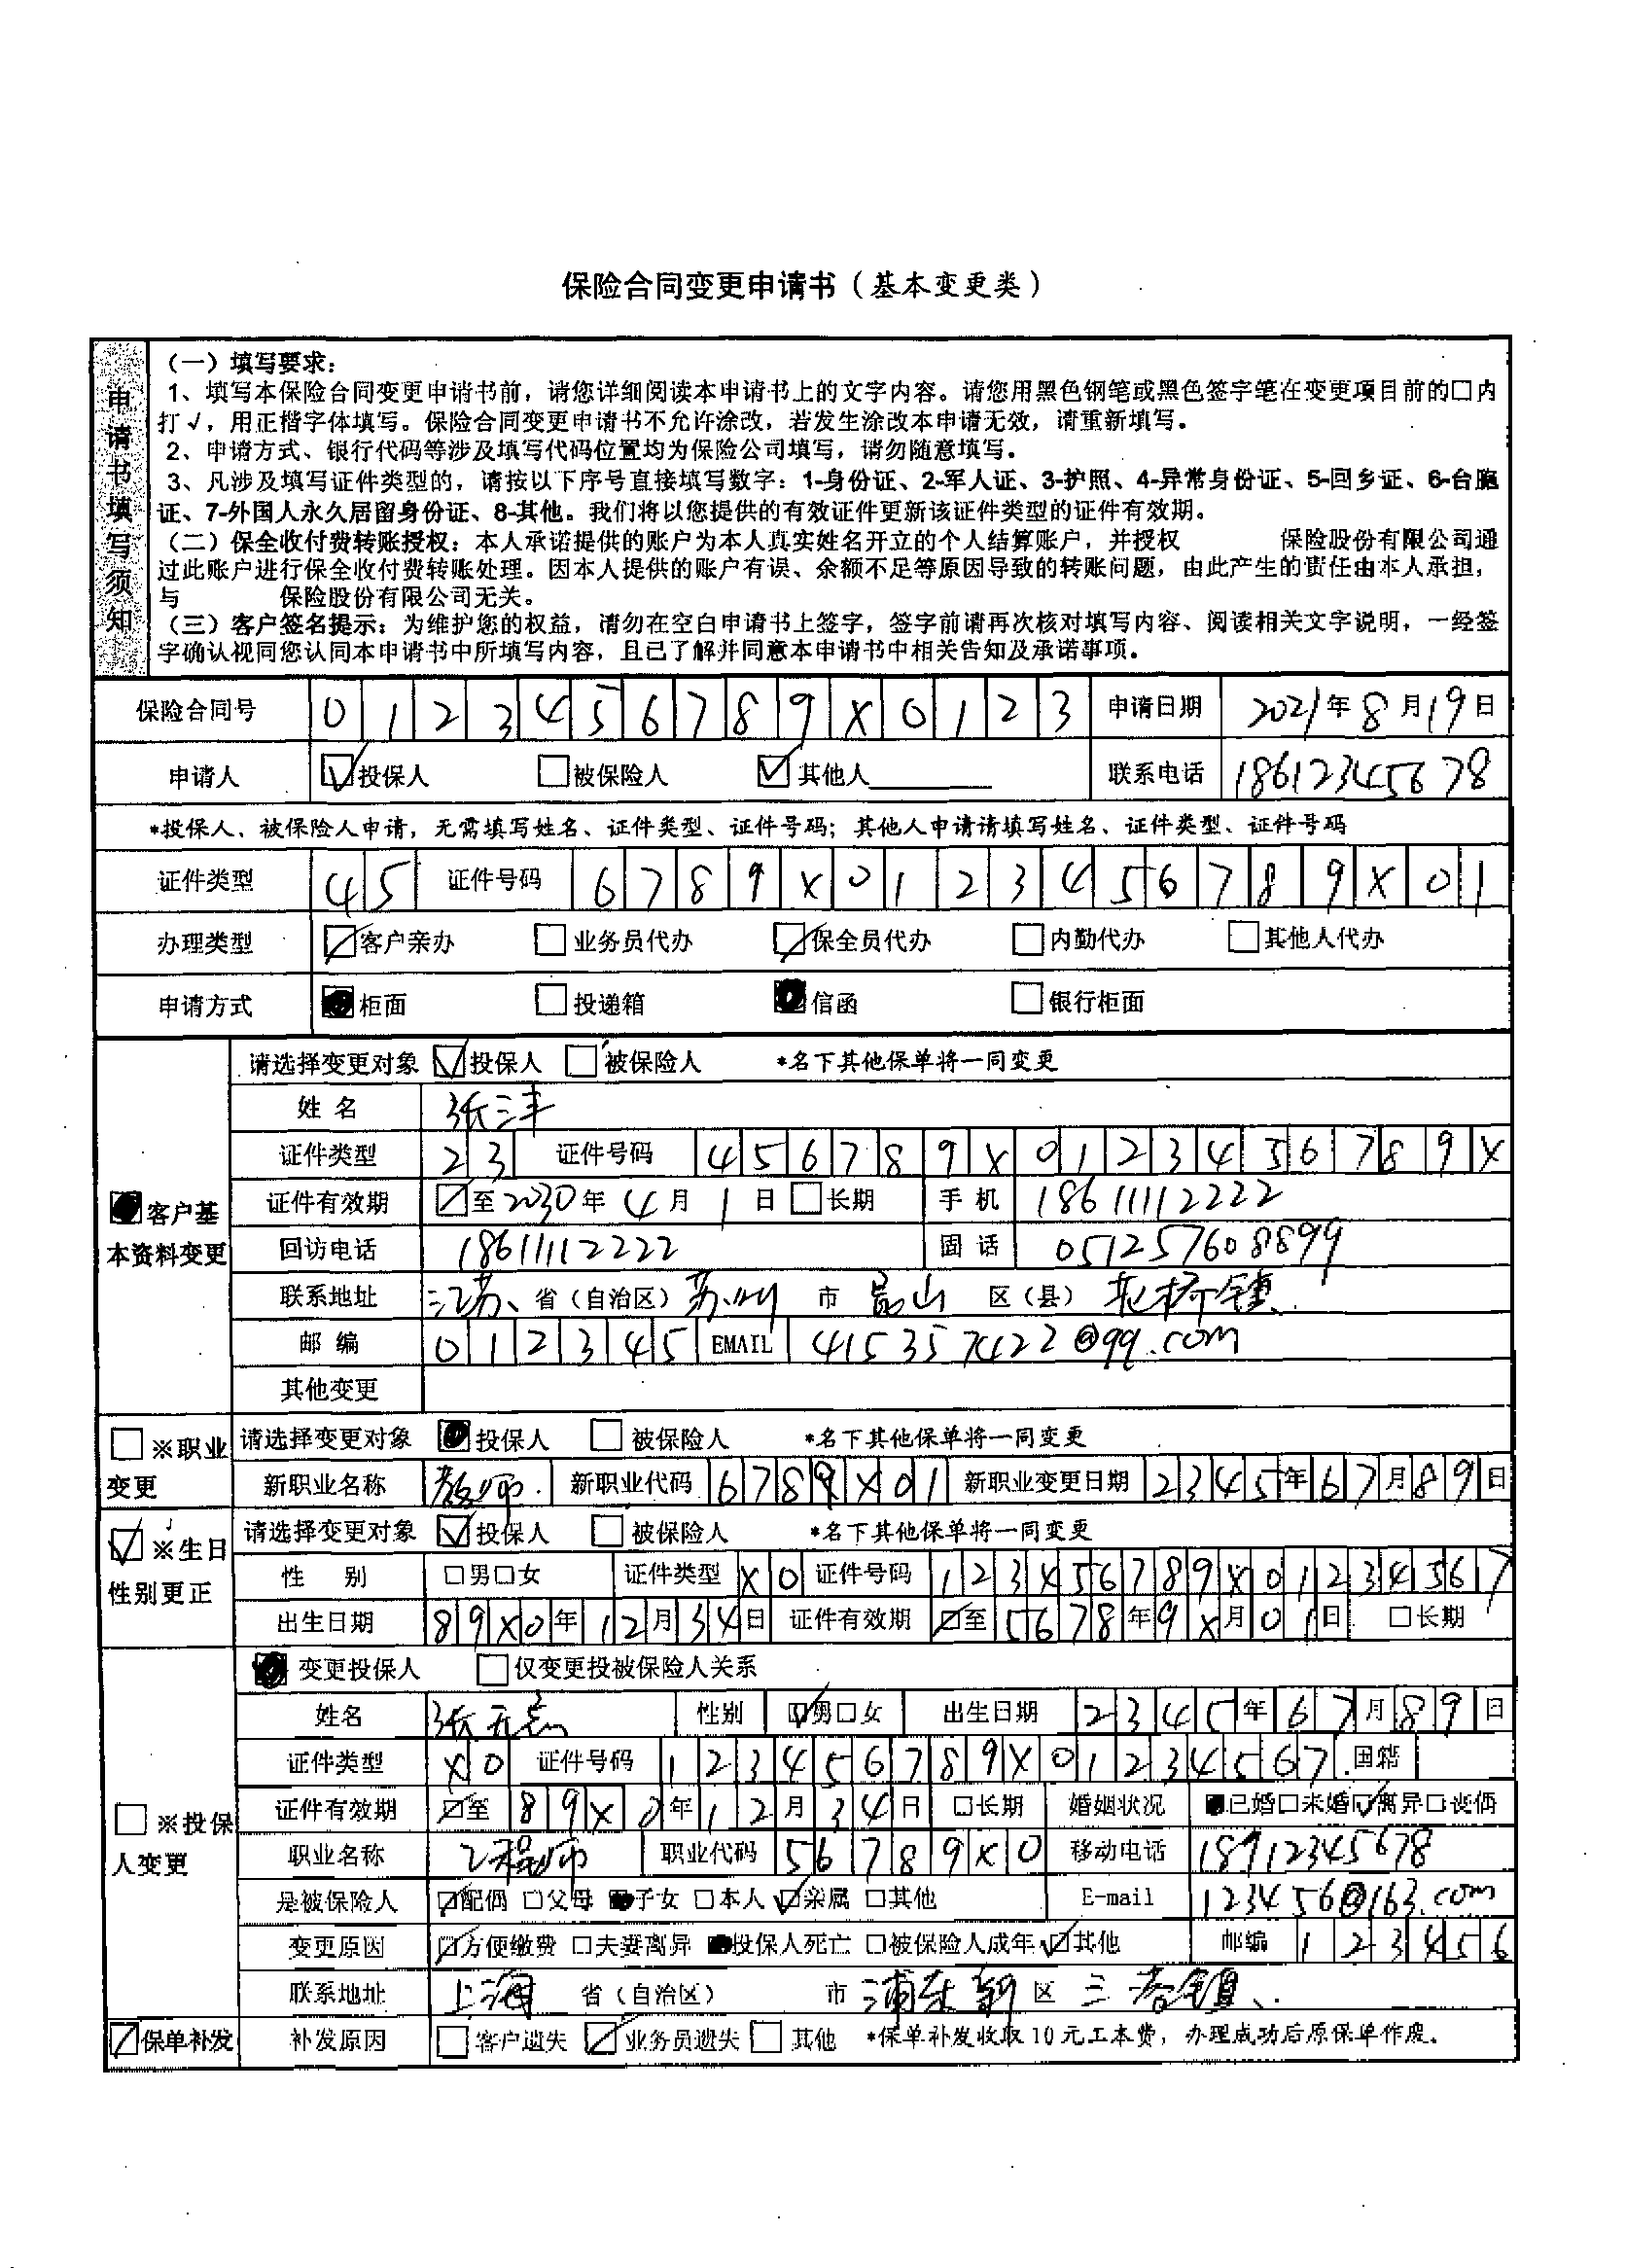 保险合同变更申请书（基本变更类）
申请书填写须知
（一）填写要求：
1、填写本保险合同变更申请书前，请您详细阅读本申请书上的文字内容。请您用黑色钢笔或黑色签字笔在变更项目前的□内
打√，用正楷字体填写。保险合同变更申请书不允许涂改，若发生涂改本申请无效，请重新填写。
2、申请方式、银行代码等涉及填写代码位置均为保险公司填写，请勿随意填写。
3、凡涉及填写证件类型的，请按以下序号直接填写数字：1-身份证、2-军人证、3-护照、4-异常身份证、5-回乡证、6-台胞
证、7-外国人永久居留身份证、8-其他。我们将以您提供的有效证件更新该证件类型的证件有效期。
（二）保全收付费转账授权：本人承诺提供的账户为本人真实姓名开立的个人结算账户，并授权 保险股份有限公司通
过此账户进行保全收付费转账处理。因本人提供的账户有误、余额不足等原因导致的转账问题，由此产生的责任由本人承担，
与 保险股份有限公司无关。
（三）客户签名提示：为维护您的权益，请勿在空白申请书上签字，签字前请再次核对填写内容、阅读相关文字说明，一经签
字确认视同您认同本申请书中所填写内容，且已了解并同意本申请书中相关告知及承诺事项。
保险合同号 0123456789X0123 申请日期 2021年8月19日
申请人 ☑投保人 □被保险人 ☑其他人 联系电话 18612345678
*投保人、被保险人申请，无需填写姓名、证件类型、证件号码；其他人申请请填写姓名、证件类型、证件号码
证件类型 45 证件号码 6789X0123456789X01
办理类型 ☑客户亲办 □业务员代办 ☑保全员代办 □内勤代办 □其他人代办
申请方式 ■柜面 □投递箱 ■信函 □银行柜面
■客户基本资料变更
请选择变更对象 ☑投保人 □被保险人 *名下其他保单将一同变更
姓名 张三丰
证件类型 23 证件号码 456789X0123456789X
证件有效期 ☑至2030年4月1日 □长期 手机 18611112222
回访电话 18611112222 固话 051257608899
联系地址 江苏 省（自治区）苏州 市 昆山 区（县）花桥镇
邮编 012345 EMAIL 415357422@qq.com
其他变更
□※职业变更
请选择变更对象 ■投保人 □被保险人 *名下其他保单将一同变更
新职业名称 教师 新职业代码 6789X01 新职业变更日期 2345年67月89日
☑※生日性别更正
请选择变更对象 ☑投保人 □被保险人 *名下其他保单将一同变更
性别 □男□女 证件类型 X0 证件号码 123456789X01234567
出生日期 89X0年12月34日 证件有效期 ☑至5678年9X月01日 □长期
□※投保人变更
■变更投保人 □仅变更投被保险人关系
姓名 张无忌 性别 ☑男□女 出生日期 2345年67月89日
证件类型 X0 证件号码 123456789X01234567 国籍
证件有效期 ☑至89X0年12月34日 □长期 婚姻状况 ■已婚□未婚☑离异□丧偶
职业名称 工程师 职业代码 56789X0 移动电话 18912345678
是被保险人 ☑配偶 □父母 ■子女 □本人 ☑亲属 □其他 E-mail 123456@163.com
变更原因 ☑方便缴费 □夫妻离异 ■投保人死亡 □被保险人成年 ☑其他 邮编 123456
联系地址 上海 省（自治区） 市 浦东新 区 三林镇
☑保单补发 补发原因 □客户遗失 ☑业务员遗失 □其他 *保单补发收取10元工本费，办理成功后原保单作废。